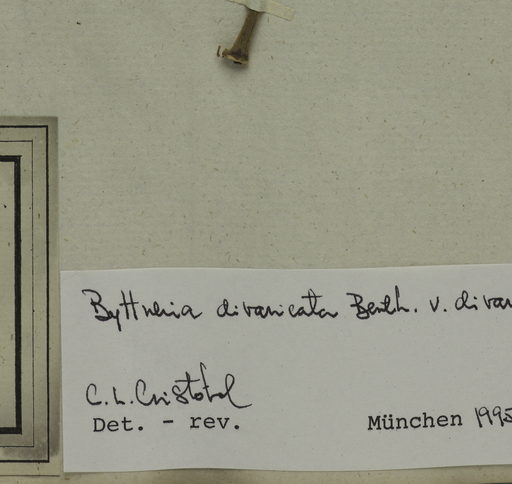 Byttneria divaricata Benth. v. divar
C. L. Cristóbal
Det. - rev.
München 1995